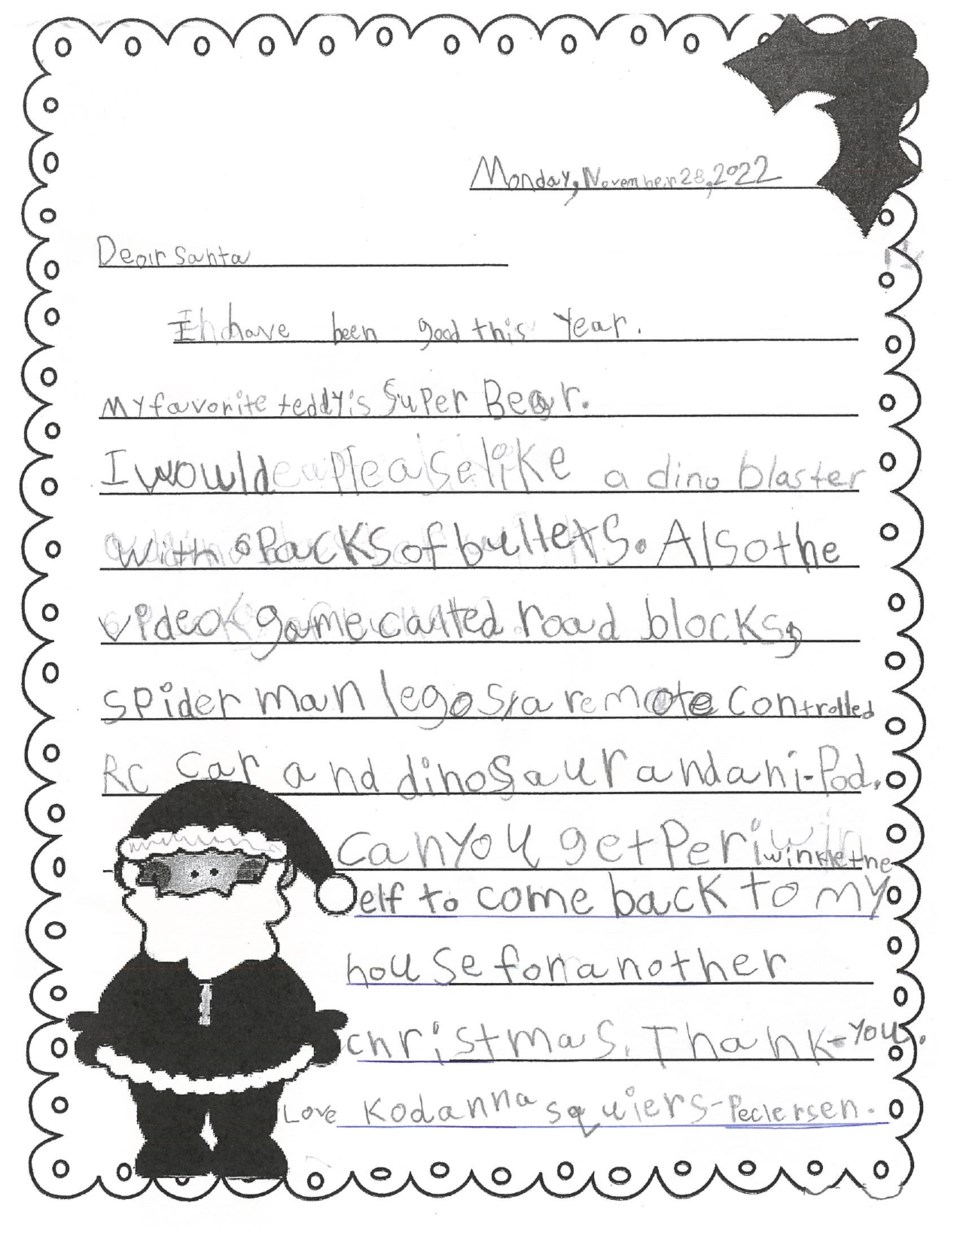 Monday, November 28, 2022
Dear Santa
I have been good this Year.
My favorite teddy's Super Bear.
I would please like a dino blaster
with 6 Packs of bullets. Also the
video game called road blocks,
spider man legos, a remote controlled
Rc car and dinosaur and an i-Pod.
Can you get Periwinkle the
elf to come back to my
house for another
christmas. Thank-you.
Love Kodanna squiers-Pedersen.